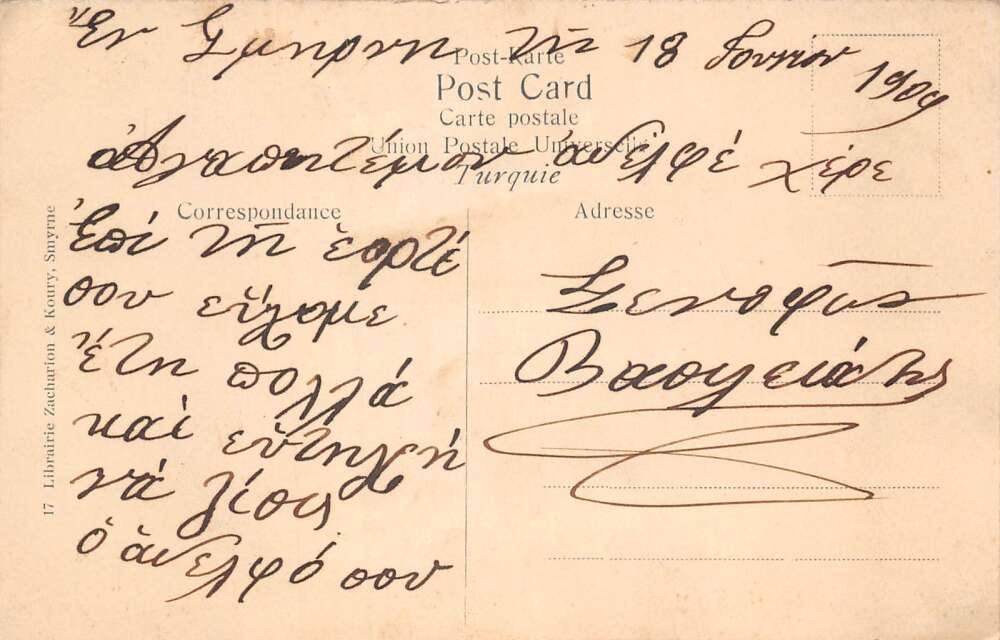 Ἐν Σμηρνη τῇ 18 Ιουνιου 1909
Post-Karte
Post Card
Carte postale
Union Postale Universelle
Turquie
ἀδελφέ χέρε
Correspondance
Adresse
Ἐπί τῇ ἑορτέ
σου εὔχομε
ἔτη πολλά
καὶ εὐτηχή
νά ζίσις
ὁ ἀδελφό σου
Ξενοφῶν
Βασιλειάδης
17 Librairie Zacharion & Koury, Smyrne